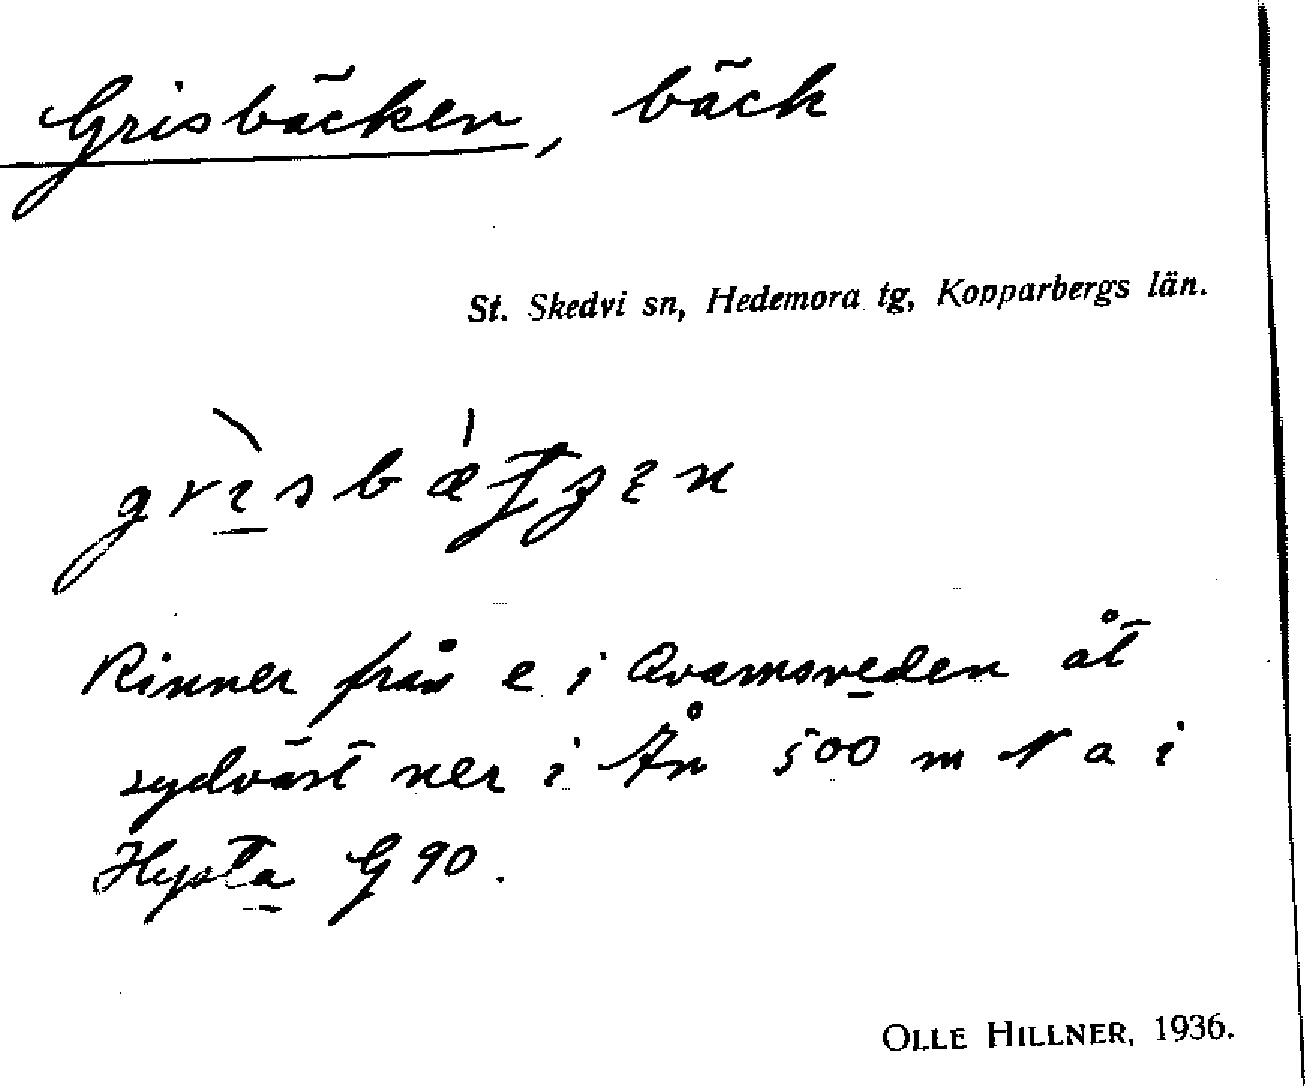 Grisbäcken, bäck
St. Skedvi sn, Hedemora tg, Kopparbergs län.
Rinner från e i Qvarnsveden åt
sydväst ner i Ån 500 m N a i
Hysta G 90.
OLLE HILLNER, 1936.